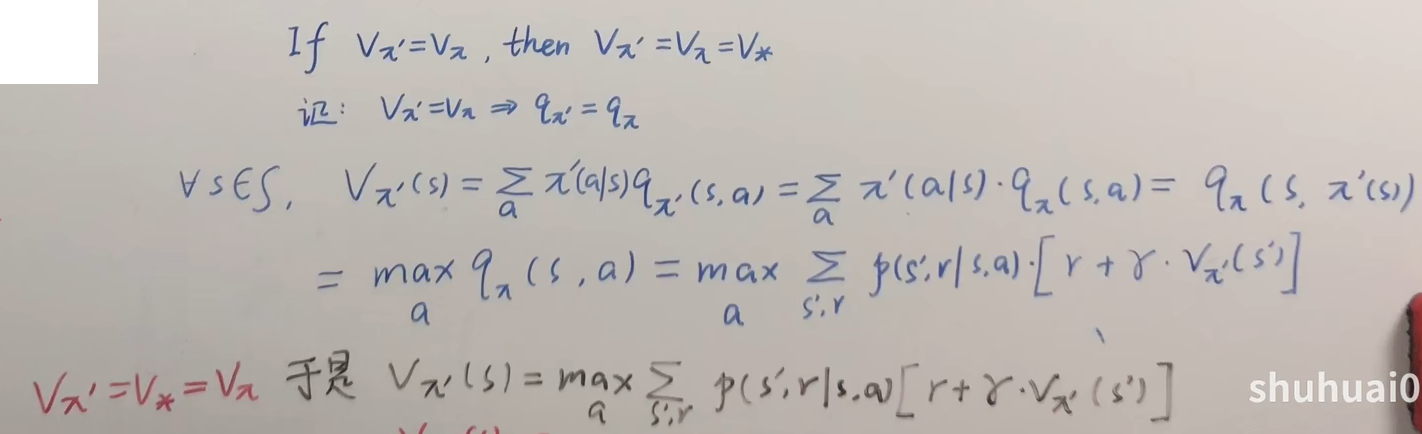 If Vπ'=Vπ, then Vπ'=Vπ=V*
证: Vπ'=Vπ ⇒ qπ'=qπ
∀s∈S, Vπ'(s) = Σ_a π'(a|s)qπ'(s,a) = Σ_a π'(a|s)·qπ(s,a) = qπ(s, π'(s))
= max_a qπ(s,a) = max_a Σ_{s',r} p(s',r|s,a)·[r+γ·Vπ'(s')]
Vπ'=V*=Vπ 于是 Vπ'(s) = max_a Σ_{s',r} p(s',r|s,a)[r+γ·Vπ'(s')]
shuhuai0